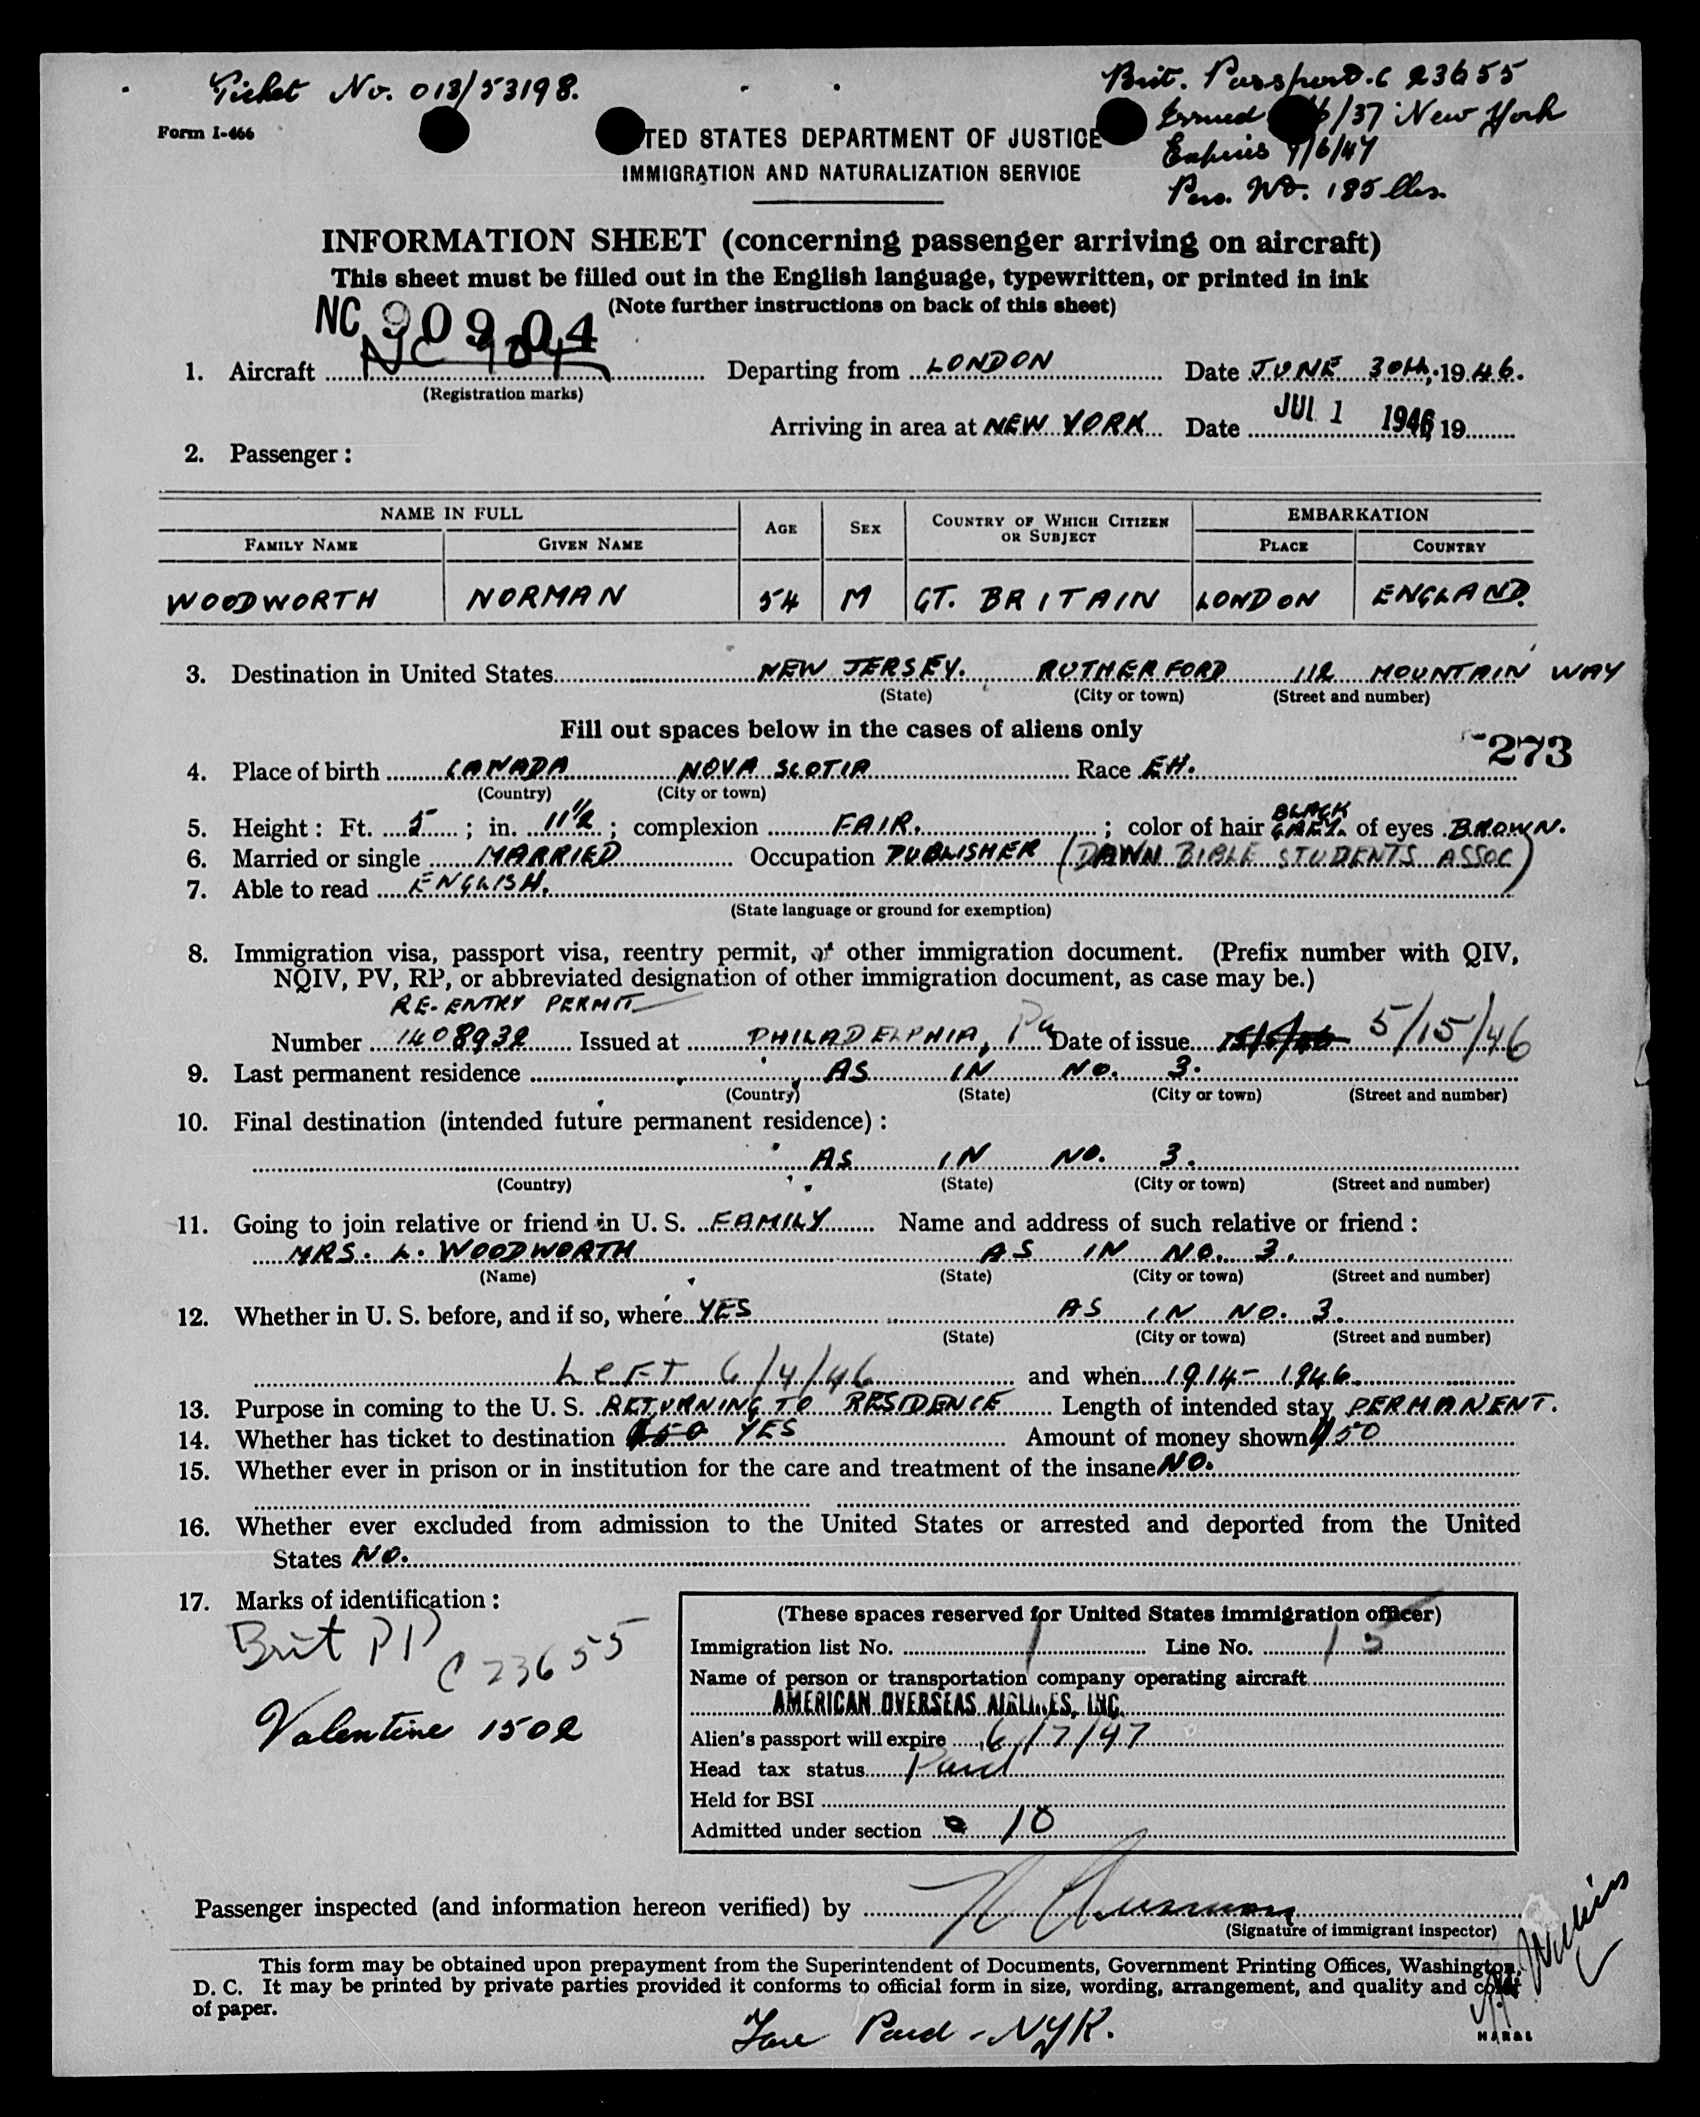 Ticket No. 013/53198.
Brit. Passport. C 23655
Form I-466
TED STATES DEPARTMENT OF JUSTICE
Issued 6/37 New York
IMMIGRATION AND NATURALIZATION SERVICE
Expires 7/6/47
Pers. Wt. 185 lbs.
INFORMATION SHEET (concerning passenger arriving on aircraft)
This sheet must be filled out in the English language, typewritten, or printed in ink
(Note further instructions on back of this sheet)
NC 90904
1. Aircraft NC 904 Departing from LONDON Date JUNE 30th, 1946.
(Registration marks)
Arriving in area at NEW YORK Date JUL 1 1946, 19
2. Passenger:
NAME IN FULL AGE SEX COUNTRY OF WHICH CITIZEN OR SUBJECT EMBARKATION
FAMILY NAME GIVEN NAME PLACE COUNTRY
WOODWORTH NORMAN 54 M GT. BRITAIN LONDON ENGLAND.
3. Destination in United States NEW JERSEY. RUTHERFORD 112 MOUNTAIN WAY
(State) (City or town) (Street and number)
Fill out spaces below in the cases of aliens only
273
4. Place of birth CANADA NOVA SCOTIA Race EH.
(Country) (City or town)
5. Height: Ft. 5; in. 11 1/2; complexion FAIR.; color of hair BLACK GREY. of eyes BROWN.
6. Married or single MARRIED Occupation PUBLISHER (DAWN BIBLE STUDENTS ASSOC)
7. Able to read ENGLISH.
(State language or ground for exemption)
8. Immigration visa, passport visa, reentry permit, or other immigration document. (Prefix number with QIV,
NQIV, PV, RP, or abbreviated designation of other immigration document, as case may be.)
RE-ENTRY PERMIT
Number 1408932 Issued at PHILADELPHIA, Pa Date of issue 5/15/46
9. Last permanent residence AS IN NO. 3.
(Country) (State) (City or town) (Street and number)
10. Final destination (intended future permanent residence):
AS IN NO. 3.
(Country) (State) (City or town) (Street and number)
11. Going to join relative or friend in U. S. FAMILY Name and address of such relative or friend:
MRS. L. WOODWORTH AS IN NO. 3.
(Name) (State) (City or town) (Street and number)
12. Whether in U. S. before, and if so, where YES AS IN NO. 3.
(State) (City or town) (Street and number)
LEFT 6/4/46 and when 1914-1946.
13. Purpose in coming to the U. S. RETURNING TO RESIDENCE Length of intended stay PERMANENT.
14. Whether has ticket to destination $50 YES Amount of money shown $50
15. Whether ever in prison or in institution for the care and treatment of the insane NO.
16. Whether ever excluded from admission to the United States or arrested and deported from the United
States NO.
17. Marks of identification:
Brit PP C 23655
Valentine 1502
(These spaces reserved for United States immigration officer)
Immigration list No. 1 Line No. 15
Name of person or transportation company operating aircraft
AMERICAN OVERSEAS AIRLINES, INC.
Alien's passport will expire 6/7/47
Head tax status Paid
Held for BSI
Admitted under section 10
Passenger inspected (and information hereon verified) by
(Signature of immigrant inspector)
This form may be obtained upon prepayment from the Superintendent of Documents, Government Printing Offices, Washington,
D. C. It may be printed by private parties provided it conforms to official form in size, wording, arrangement, and quality and color
of paper.
Fare Paid - NYK.